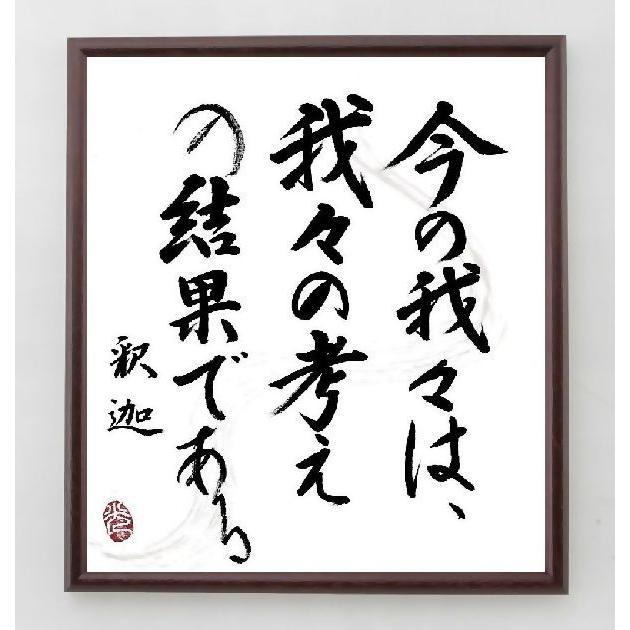 今の我々は、
我々の考え
の結果である
釈迦